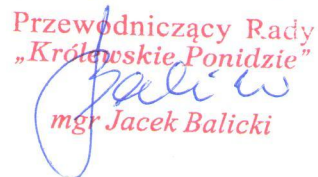 Przewodniczący Rady
„Królewskie Ponidzie”
mgr Jacek Balicki